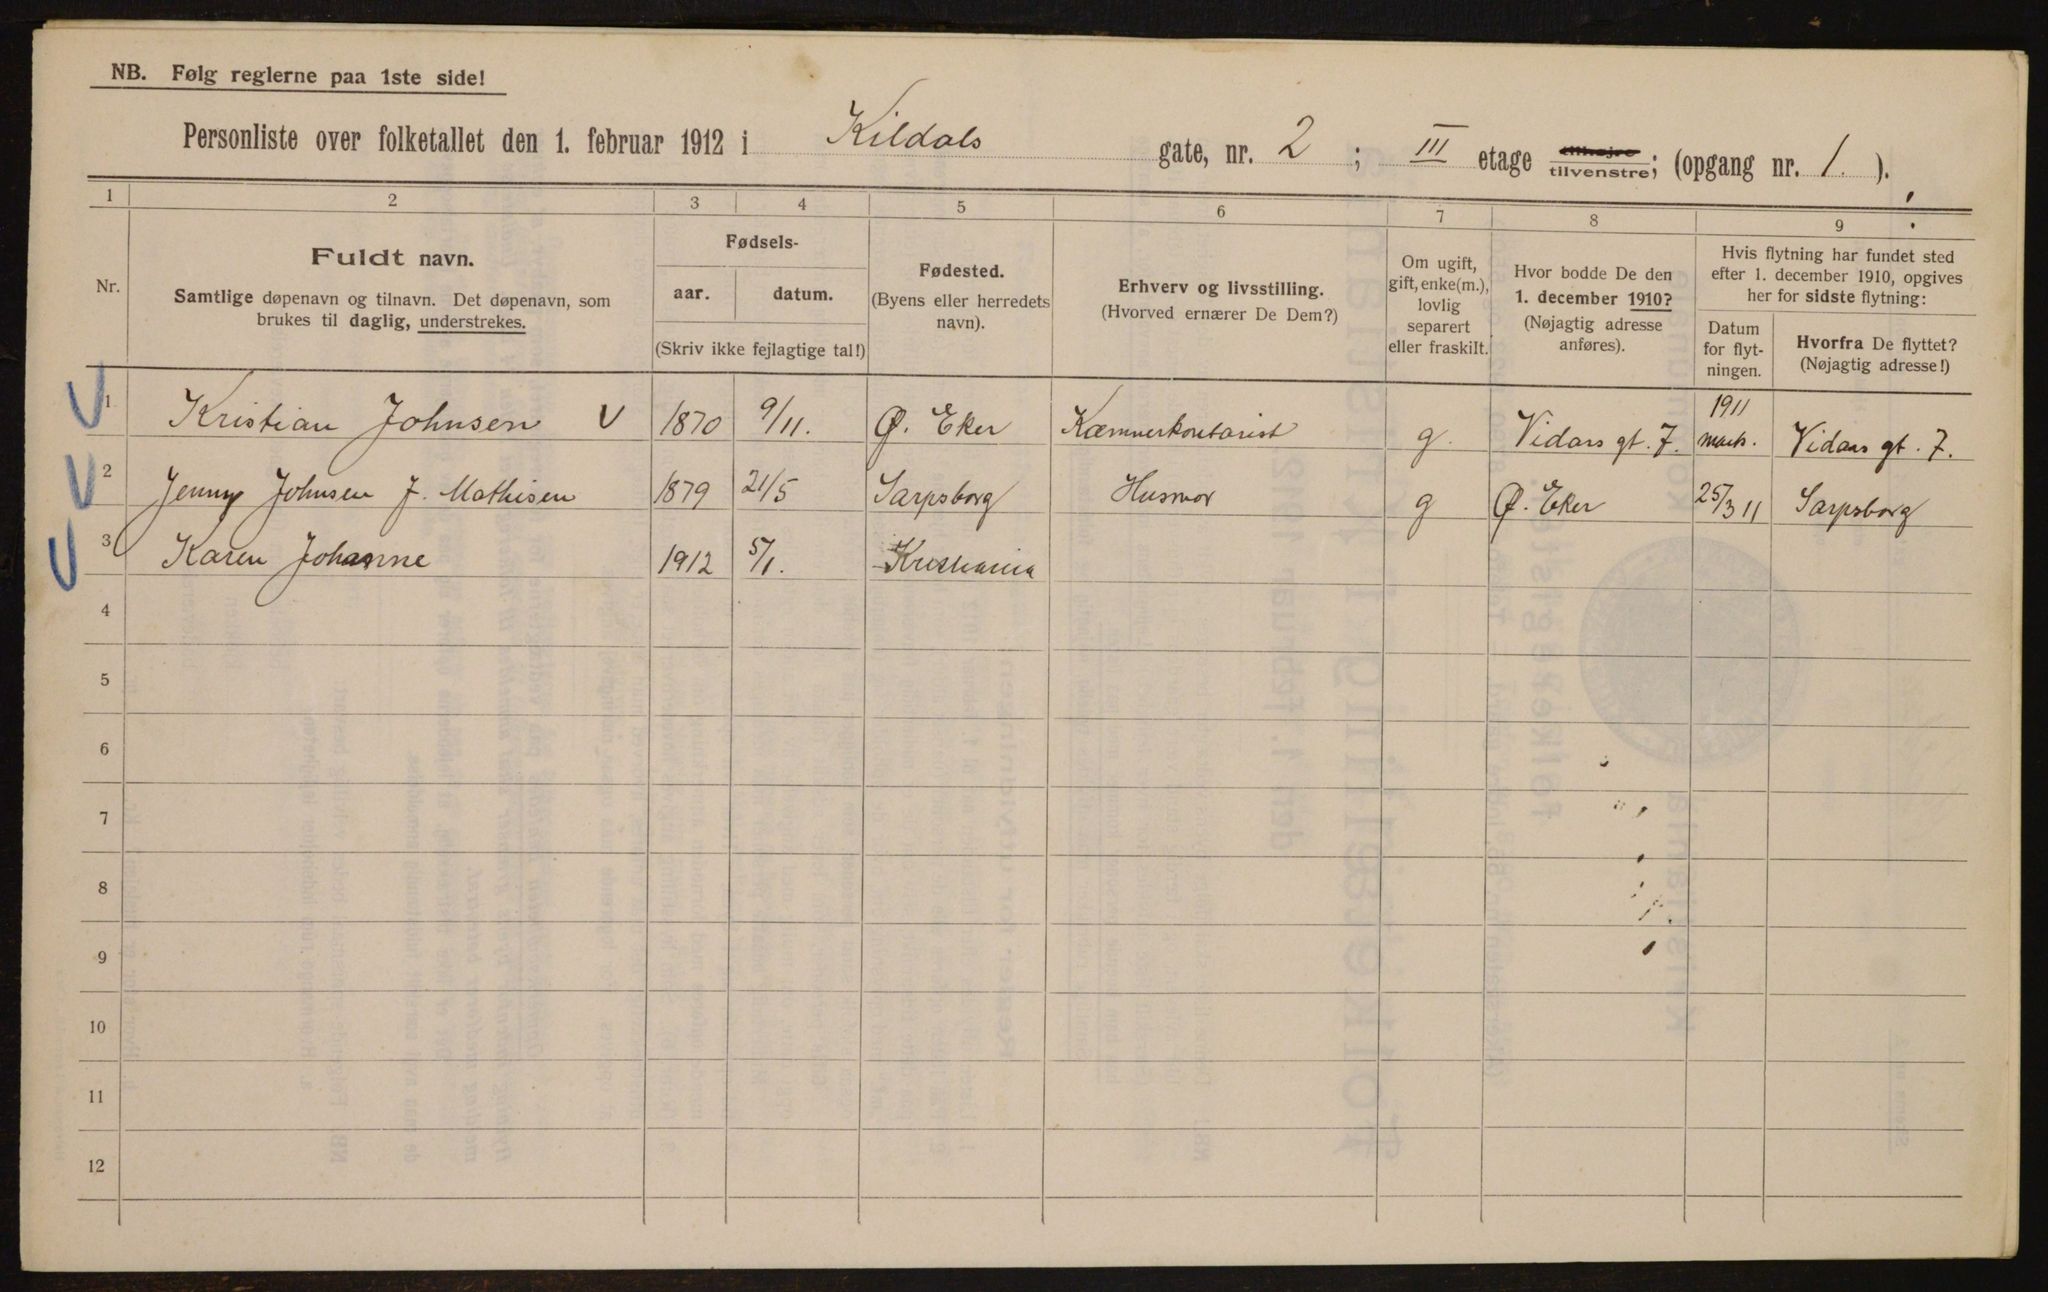 NB. Følg reglerne paa 1ste side!
Personliste over folketallet den 1. februar 1912 i Kildals gate, nr. 2 ; III etage tilhøjre tilvenstre; (opgang nr. 1. ).
1 2 3 4 5 6 7 8 9
Nr.
Fuldt navn.
Samtlige døpenavn og tilnavn. Det døpenavn, som
brukes til daglig, understrekes.
Fødsels-
aar. datum.
(Skriv ikke fejlagtige tal!)
Fødested.
(Byens eller herredets
navn).
Erhverv og livsstilling.
(Hvorved ernærer De Dem?)
Om ugift,
gift, enke(m.),
lovlig
separert
eller fraskilt.
Hvor bodde De den
1. december 1910?
(Nøjagtig adresse
anføres).
Hvis flytning har fundet sted
efter 1. december 1910, opgives
her for sidste flytning:
Datum
for flyt-
ningen.
Hvorfra De flyttet?
(Nøjagtig adresse!)
1 Kristian Johnsen V 1870 9/11. Ø. Eker Kæmnerkontorist g. Vidars gt. 7. 1911 marts. Vidars gt. 7.
2 Jenny Johnsen f. Mathisen 1879 21/5 Sarpsborg Husmor g Ø. Eker 25/3 11 Sarpsborg
3 Karen Johanne 1912 5/1. Kristiania
4
5
6
7
8
9
10
11
12